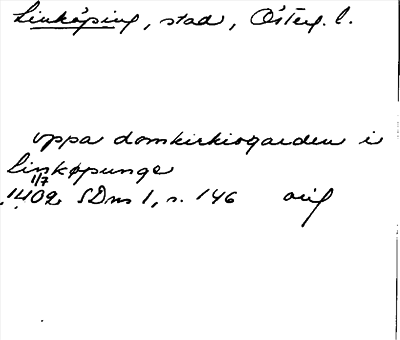 Linköping, stad, Österg. l.
uppa domkirkiogarden i
Linkøpunge
1/7
1402 SDns 1, s. 146 orig